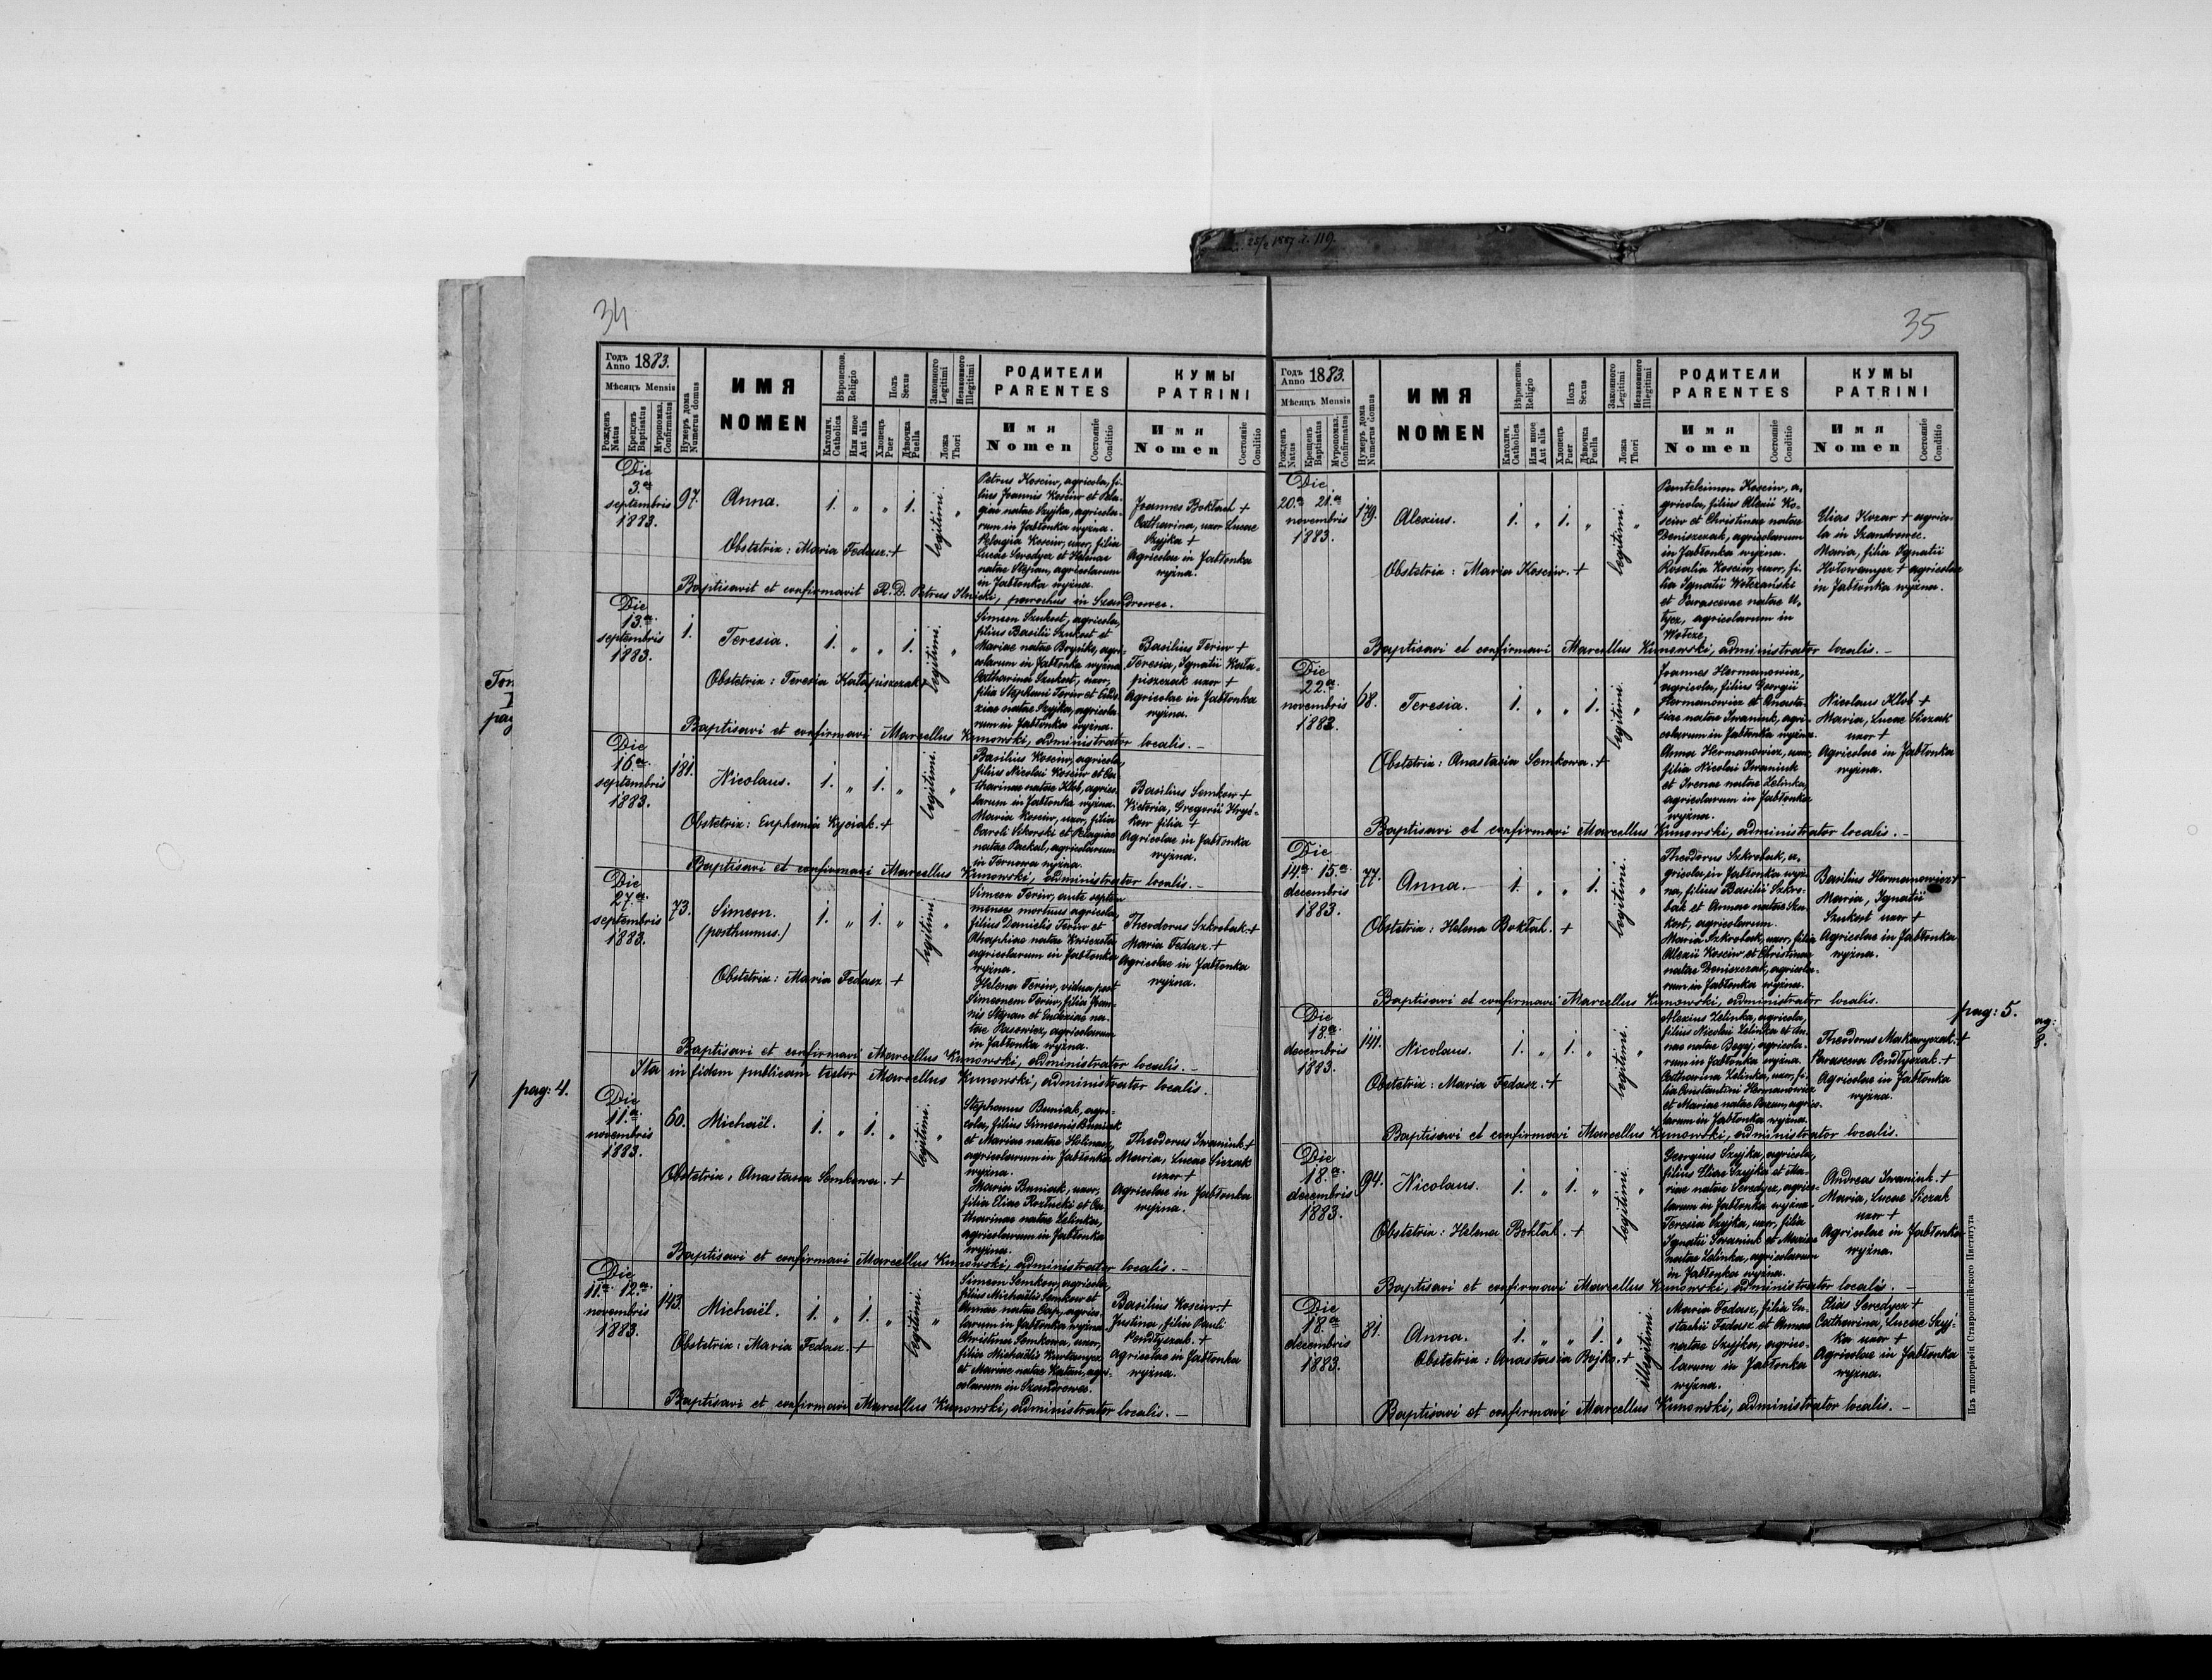 L. 25/2 1887 l. 119.
34
Годъ Anno 1883.
Мѣсяцъ Mensis
Рожденъ Natus
Крещенъ Baptisatus
Мѵропомаз. Confirmatus
Нумеръ дома Numerus domus
ИМЯ
NOMEN
Вѣроисповѣд. Religio
Католич. Catholica
Или иное Aut alia
Полъ Sexus
Хлопецъ Puer
Дѣвочка Puella
Законного Legitimi
Незаконного Illegitimi
Ложа Thori
РОДИТЕЛИ
PARENTES
Имя
Nomen
Состояніе Conditio
КУМЫ
PATRINI
Имя
Nomen
Состояніе Conditio
Die
3.a
septembris
1883.
97.
Anna.
1. " " 1.
legitimi. "
Obstetrix: Maria Fedasz. +
Petrus Kosciw, agricola, fi-
lius Joannis Kosciw et Pela-
giae natae Szyjka, agricola-
rum in Jabłonka wyżna.
Pelagia Kosciw, uxor, filia
Lucae Seredycz et Helenae
natae Stepan, agricolarum
in Jabłonka wyżna.
Joannes Boktach +
Catharina, uxor Lucae
Szyjka +
Agricolae in Jabłonka
wyżna.
Baptisavit et confirmavit R. D. Petrus Ilnicki, parochus in Szandrowec.
Die
13.a
septembris
1883.
1.
Teresia.
1. " " 1.
legitimi. "
Obstetrix: Teresia Kałapiszczak +
Simeon Szukost, agricola,
filius Basilii Szukost et
Mariae natae Brynika, agri-
colarum in Jabłonka wyżna.
Catharina Szukost, uxor,
filia Stephani Teriw et Eudo-
xiae natae Szyjka, agricola-
rum in Jabłonka wyżna.
Basilius Teriw +
Teresia, Ignatii Kała-
piszczak uxor +
Agricolae in Jabłonka
wyżna.
Baptisavi et confirmavi Marcellus Kunowski, administrator localis. –
Die
16.a
septembris
1883.
181.
Nicolaus.
1. " 1. "
legitimi. "
Obstetrix: Euphemia Kyciak. +
Basilius Kosciw, agricola,
filius Nicolai Kosciw et Ca-
tharinae natae Kłeb, agrico-
larum in Jabłonka wyżna.
Maria Kosciw, uxor, filia
Caroli Sikorski et Pelagiae
natae Packal, agricolarum
in Tarnowa wyżna.
Basilius Semkow +
Victoria, Gregorii Hryć-
kow filia +
Agricolae in Jabłonka
wyżna.
Baptisavi et confirmavi Marcellus Kunowski, administrator localis. –
Die
27.a
septembris
1883.
73.
Simeon.
(posthumus.)
1. " 1. "
legitimi. "
Obstetrix: Maria Fedasz. +
Simeon Teriw, ante septem
menses mortuus agricola,
filius Danielis Teriw et
Ahaphiae natae Kwiczoła
agricolarum in Jabłonka
wyżna.
Helena Teriw, vidua post
Simeonem Teriw, filia Joan-
nis Stepan et Eudoxiae na-
tae Pasewicz, agricolarum
in Jabłonka wyżna.
Theodorus Szkrobak. +
Maria Fedasz. +
Agricolae in Jabłonka
wyżna.
Baptisavi et confirmavi Marcellus Kunowski, administrator localis. –
Ita in fidem publicam testor Marcellus Kunowski, administrator localis.
pag: 4.
Die
11.a
novembris
1883.
60.
Michaël.
1. " 1. "
legitimi. "
Obstetrix: Anastasia Semkowa. +
Stephanus Buniak, agri-
cola, filius Simeonis Buniak
et Mariae natae Holinacz,
agricolarum in Jabłonka
wyżna.
Maria Buniak, uxor,
filia Eliae Rozłucki et Ca-
tharinae natae Zelinka,
agricolarum in Jabłonka
wyżna.
Theodorus Iwaniuk +
Maria, Lucae Siczak
uxor +
Agricolae in Jabłonka
wyżna.
Baptisavi et confirmavi Marcellus Kunowski, administrator localis. –
Die
11.a 12.a
novembris
1883.
143.
Michaël.
1. " 1. "
legitimi. "
Obstetrix: Maria Fedasz. +
Simeon Semkow, agricola,
filius Michaëlis Semkow et
Annae natae Cap, agrico-
larum in Jabłonka wyżna.
Christina Semkowa, uxor,
filia Michaëlis Kuntanycz
et Mariae natae Hatan, agri-
colarum in Szandrowec.
Basilius Kosciw. +
Justina, filia Pauli
Pendłyszak. +
Agricolae in Jabłonka
wyżna.
Baptisavi et confirmavi Marcellus Kunowski, administrator localis. –
35
Годъ Anno 1883.
Мѣсяцъ Mensis
Рожденъ Natus
Крещенъ Baptisatus
Мѵропомаз. Confirmatus
Нумеръ дома Numerus domus
ИМЯ
NOMEN
Вѣроисповѣд. Religio
Католич. Catholica
Или иное Aut alia
Полъ Sexus
Хлопецъ Puer
Дѣвочка Puella
Законного Legitimi
Незаконного Illegitimi
Ложа Thori
РОДИТЕЛИ
PARENTES
Имя
Nomen
Состояніе Conditio
КУМЫ
PATRINI
Имя
Nomen
Состояніе Conditio
Die
20.a 21.a
novembris
1883.
179.
Alexius.
1. " 1. "
legitimi. "
Obstetrix: Maria Kosciw. +
Panteleimon Kosciw, a-
gricola, filius Alexii Ko-
sciw et Christinae natae
Deniszczak, agricolarum
in Jabłonka wyżna.
Rosalia Kosciw, uxor, fi-
lia Ignatii Wołczański
et Parascevae natae U-
tycz, agricolarum in
Wołcze.
Elias Kozar + agrico-
la in Szandrowec.
Maria, filia Ignatii
Hołowczycz + agricolae
in Jabłonka wyżna.
Baptisavi et confirmavi Marcellus Kunowski, administrator localis. –
Die
22.a
novembris
1883.
68.
Teresia.
1. " " 1.
legitimi. "
Obstetrix: Anastasia Semkowa. +
Joannes Hermanowicz,
agricola, filius Georgii
Hermanowicz et Anasta-
siae natae Iwaniuk, agri-
colarum in Jabłonka wyżna.
Anna Hermanowicz, uxor,
filia Nicolai Iwaniuk
et Irenae natae Zelinka,
agricolarum in Jabłonka
wyżna.
Nicolaus Kłeb +
Maria, Lucae Siczak
uxor +
Agricolae in Jabłonka
wyżna.
Baptisavi et confirmavi Marcellus Kunowski, administrator localis. –
Die
14.a 15.a
decembris
1883.
77.
Anna. –
1. " " 1.
legitimi. "
Obstetrix: Helena Boktak. +
Theodorus Szkrobak, a-
gricola, in Jabłonka wyż-
na, filius Basilii Szkro-
bak et Annae natae Szu-
kost, agricolarum.
Maria Szkrobak, uxor, filia
Alexii Kosciw et Christinae
natae Deniszczak, agricola-
rum in Jabłonka wyżna.
Basilius Hermanowicz +
Maria, Ignatii
Szukost uxor +
Agricolae in Jabłonka
wyżna.
Baptisavi et confirmavi Marcellus Kunowski, administrator localis.
pag: 5.
Die
18.a
decembris
1883.
141.
Nicolaus.
1. " 1. "
legitimi. "
Obstetrix: Maria Fedasz. +
Alexius Zelinka, agricola,
filius Nicolai Zelinka et An-
nae natae Begej, agricola-
rum in Jabłonka wyżna.
Catharina Zelinka, uxor, fi-
lia Constantini Hermanowicz
et Mariae natae Pazan, agrico-
larum in Jabłonka wyżna.
Theodorus Makaryczak. +
Parasceva Pendłyszak. +
Agricolae in Jabłonka
wyżna.
Baptisavi et confirmavi Marcellus Kunowski, administrator localis.
Die
18.a
decembris
1883.
94.
Nicolaus.
1. " 1. "
legitimi. "
Obstetrix: Helena Boktak. +
Georgius Szyjka, agricola,
filius Eliae Szyjka et Ma-
riae natae Seredycz, agrico-
larum in Jabłonka wyżna.
Teresia Szyjka, uxor, filia
Ignatii Iwaniuk et Mariae
natae Zelinka, agricolarum
in Jabłonka wyżna.
Andreas Iwaniuk. +
Maria, Lucae Siczak
uxor +
Agricolae in Jabłonka
wyżna.
Baptisavi et confirmavi Marcellus Kunowski, administrator localis. –
Die
18.a
decembris
1883.
81.
Anna.
1. " " 1. "
illegitimi.
Obstetrix: Anastasia Bojko. +
Maria Fedasz, filia Eu-
stachii Fedasz et Annae
natae Szyjka, agrico-
larum in Jabłonka
wyżna.
Elias Seredycz +
Catharina, Lucae Szyj-
ka uxor +
Agricolae in Jabłonka
wyżna.
Baptisavi et confirmavi Marcellus Kunowski, administrator localis. –
Изъ типографіи Ставропигійского Института